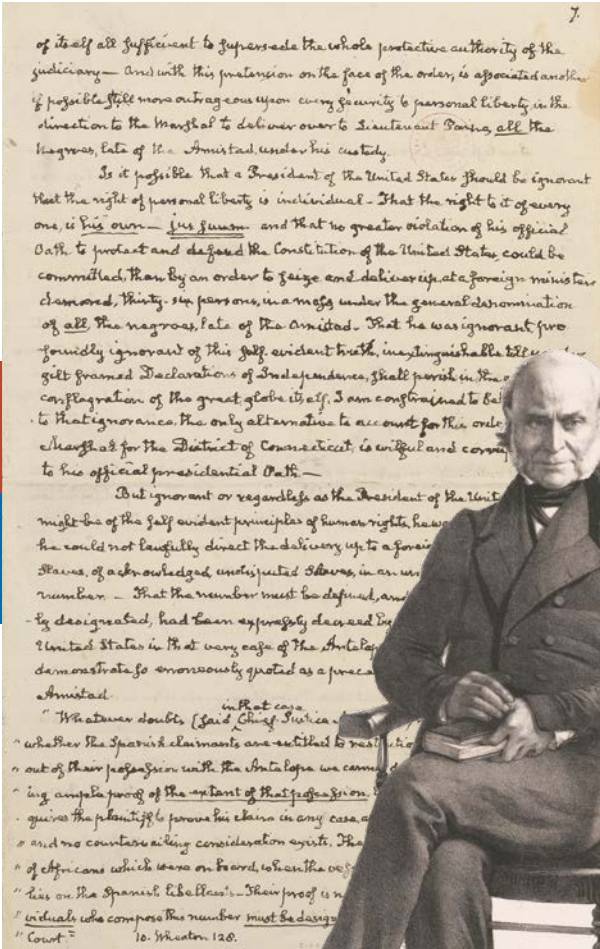 7.
of itself all sufficient to supersede the whole protective authority of the
judiciary — And with this pretension on the face of the order, is associated another
if possible still more outrageous upon every security to personal liberty, in the
direction to the Marshal to deliver over to Lieutenant Paine, all the
Negroes, late of the Amistad, under his custody.
Is it possible that a President of the United States should be ignorant
that the right of personal liberty is individual – That the right to it of every
one, is his own – jus suum and that no greater violation of his official
Oath to protect and defend the Constitution of the United States, could be
committed, than by an order to seize and deliver up, at a foreign minister's
demand, thirty-six persons, in a mass under the general denomination
of all, the negroes, late of the Amistad – That he was ignorant pro
foundly ignorant of this self-evident truth, inextinguishable till
gilt framed Declarations of Independence, shall perish in the
conflagration of the great globe itself, I am constrained to
to that ignorance, the only alternative to account for this order
Marshal for the District of Connecticut, is wilful and
to his official presidential Oath —
But ignorant or regardless as the President of the
might be of the self evident principles of human rights, he
he could not lawfully direct the delivery up to a
Slaves, of acknowledged, undisputed Slaves, in an
number – That the number must be defined, and
-ly designated, had been expressly decreed
United States in that very case of the
demonstrate so erroneously quoted as a
Amistad.
in that case
" Whatever doubts (said Chief Justice
" whether the Spanish claimants are entitled to
" out of their possession with the Antelope we
" ing ample proof of the extent of that possession.
" quires the plaintiff to prove his claim in any case,
" and no countervailing consideration exists. The
" of Africans which were on board, when the
" lies on the Spanish libellants. Their proof is
" viduals who compose this number must be
" Court." 10. Wheaton 128.